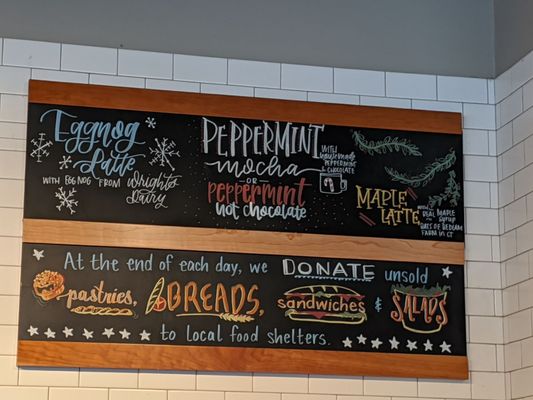 Eggnog
Latte
WITH EGG NOG FROM Wright's
Dairy
PEPPERMINT
mocha
OR
peppermint
hot chocolate
WITH
housemade
PEPPERMINT
& CHOCOLATE
MAPLE
LATTE
WITH
REAL MAPLE
Syrup
FARM IN CT
At the end of each day, we DONATE unsold
pastries, BREADS, sandwiches & SALADS
to local food shelters.